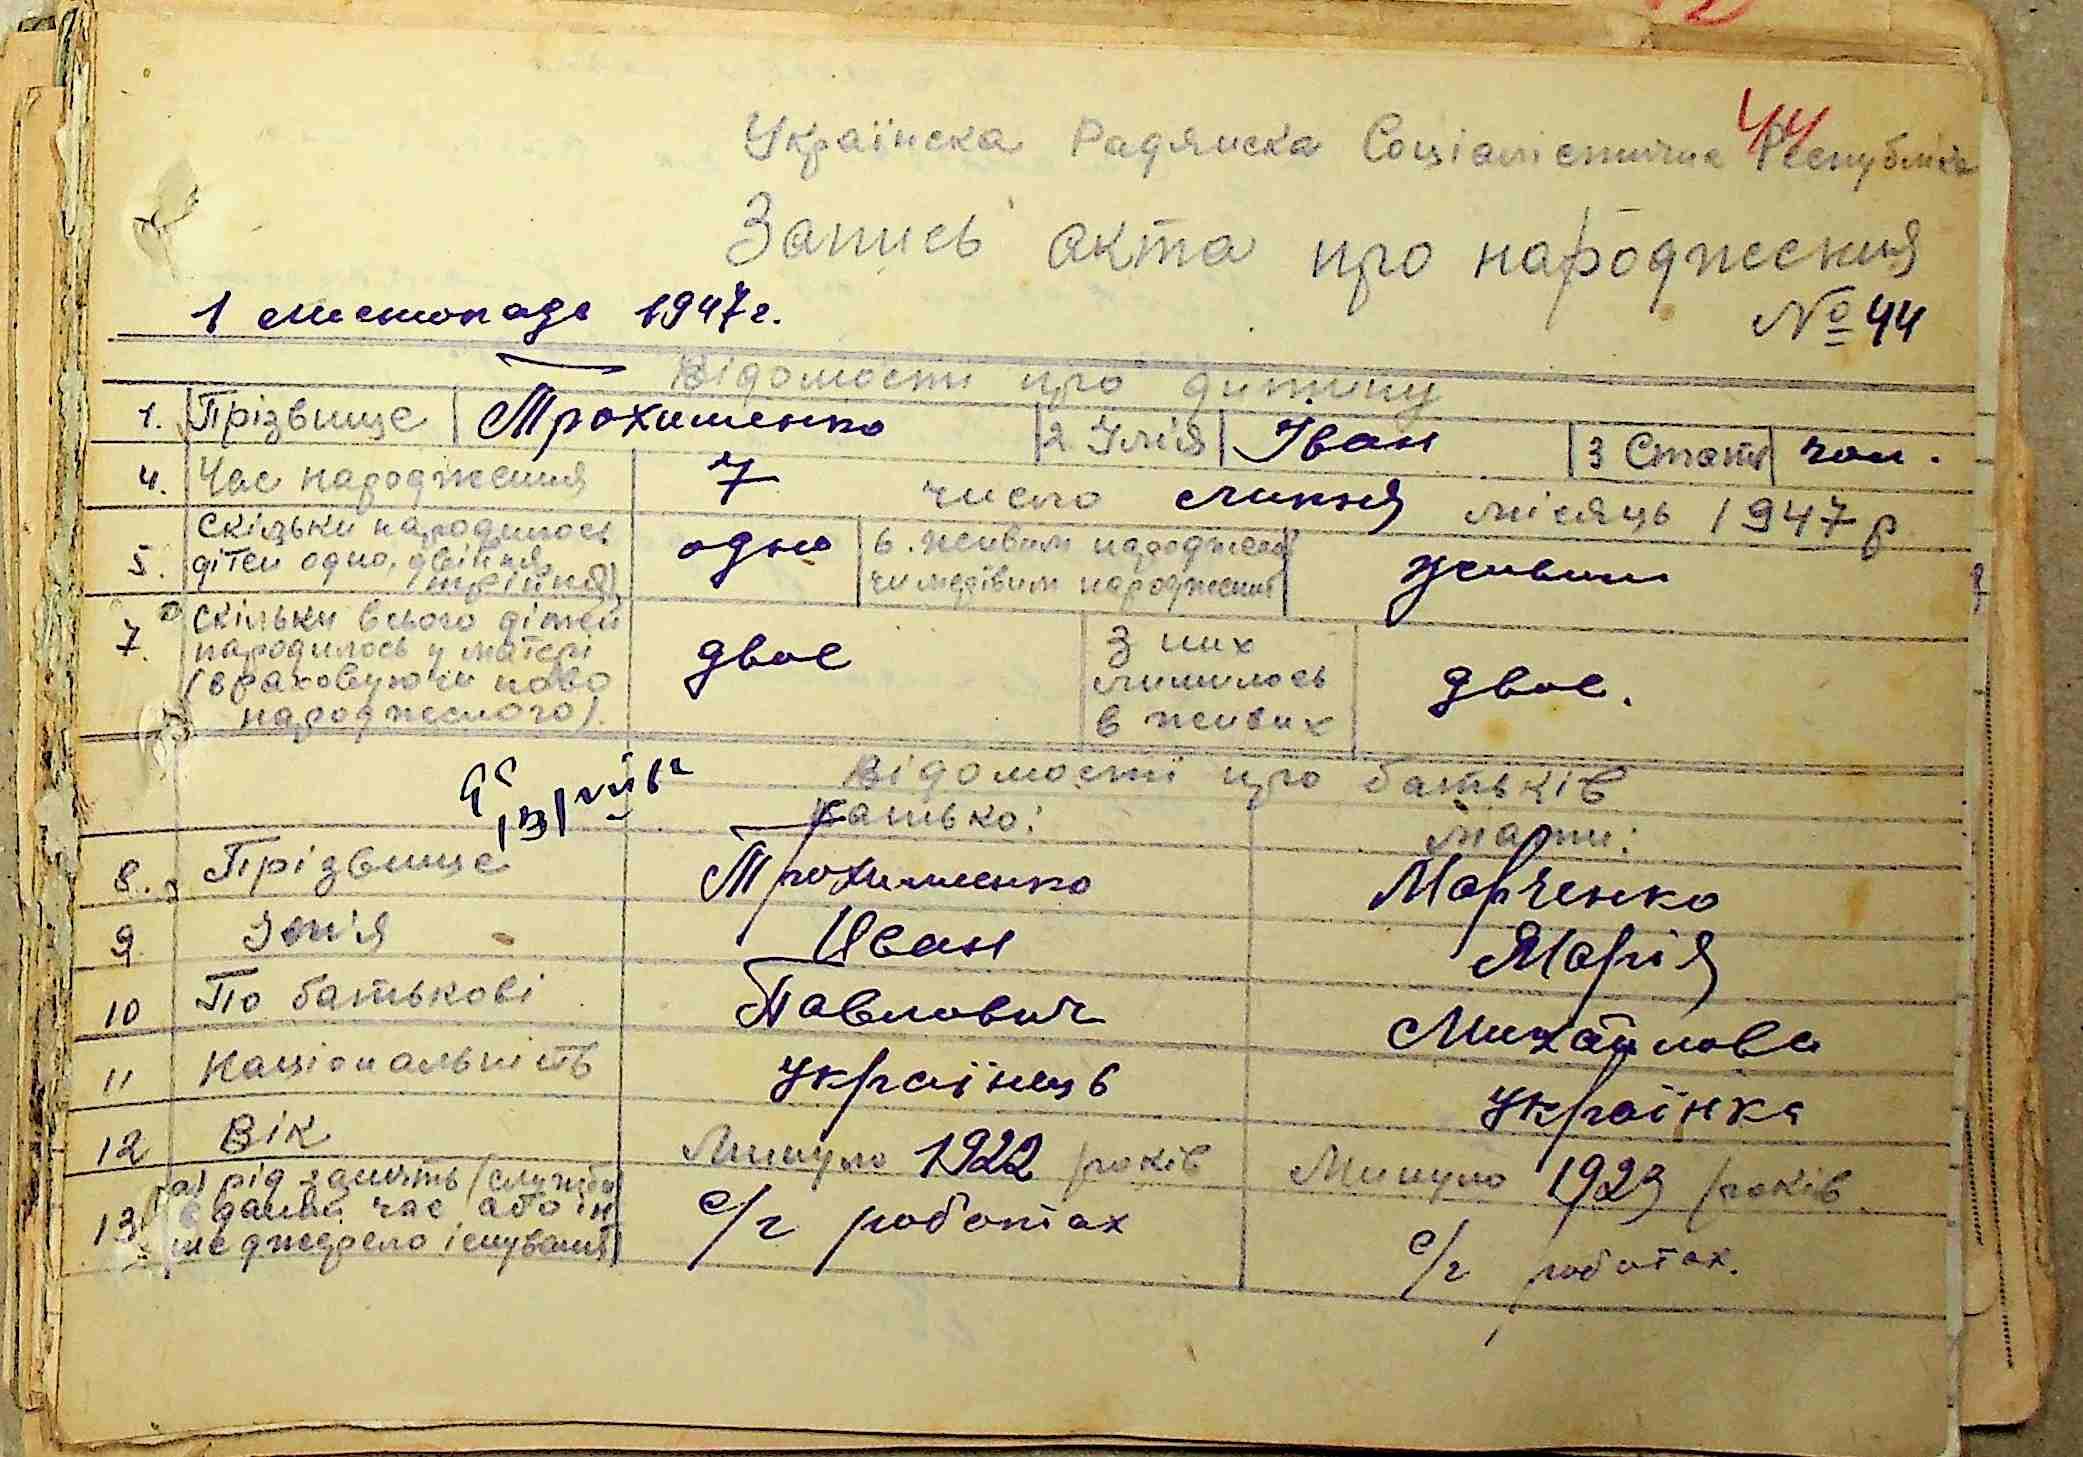 44
Українска Радянска Соціалістична Республіка
Запись акта про народження
1 листопада 1947 г. № 44
Відомости про дитину
1. Прізвище Трохименко 2 Імія Іван 3 Стать чол.
4. Час народження 7 число липня місяць 1947 р
5. Скільки народилось дітей одно, двійня, трійня) одно 6. живим народжений чи мертвим народжений живим
7. Скільки всього дітей народилось у матері (враховуючи ново народженого). двоє З них лишилось в живих двоє.
Відомості про батьків
Батько: Мати:
8. Прізвище Трохименко Марченко
9. Імія Иван Марія
10 По батькові Павлович Михайлова
11 Національність українець українка
12 Вік Минуло 1922 років Минуло 1923 років
13 а) рід занять (служба в даний час або інше джерело існування) с/г роботах с/г роботах.